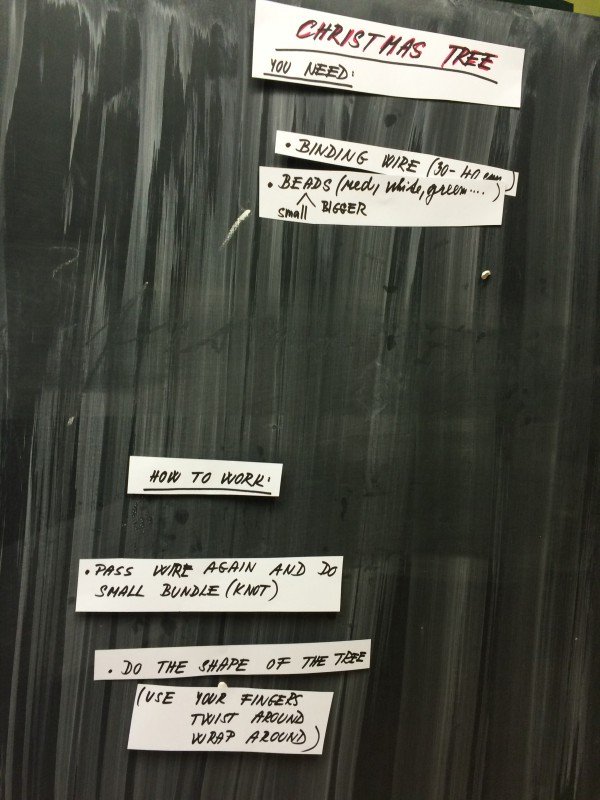 CHRISTMAS TREE
YOU NEED:
• BINDING WIRE (30-40 cm)
• BEADS (red, white, green....)
small BIGGER
HOW TO WORK:
• PASS WIRE AGAIN AND DO
SMALL BUNDLE (KNOT)
• DO THE SHAPE OF THE TREE
(USE YOUR FINGERS
TWIST AROUND
WRAP AROUND)